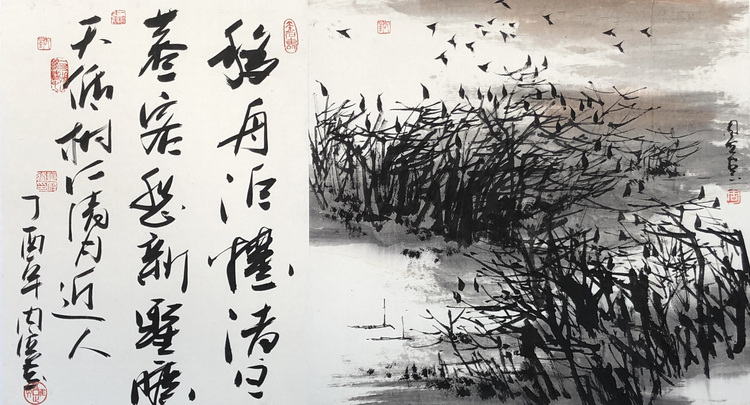 移舟泊煙渚日
暮客愁新野曠
天低樹江清月近人
丁酉年